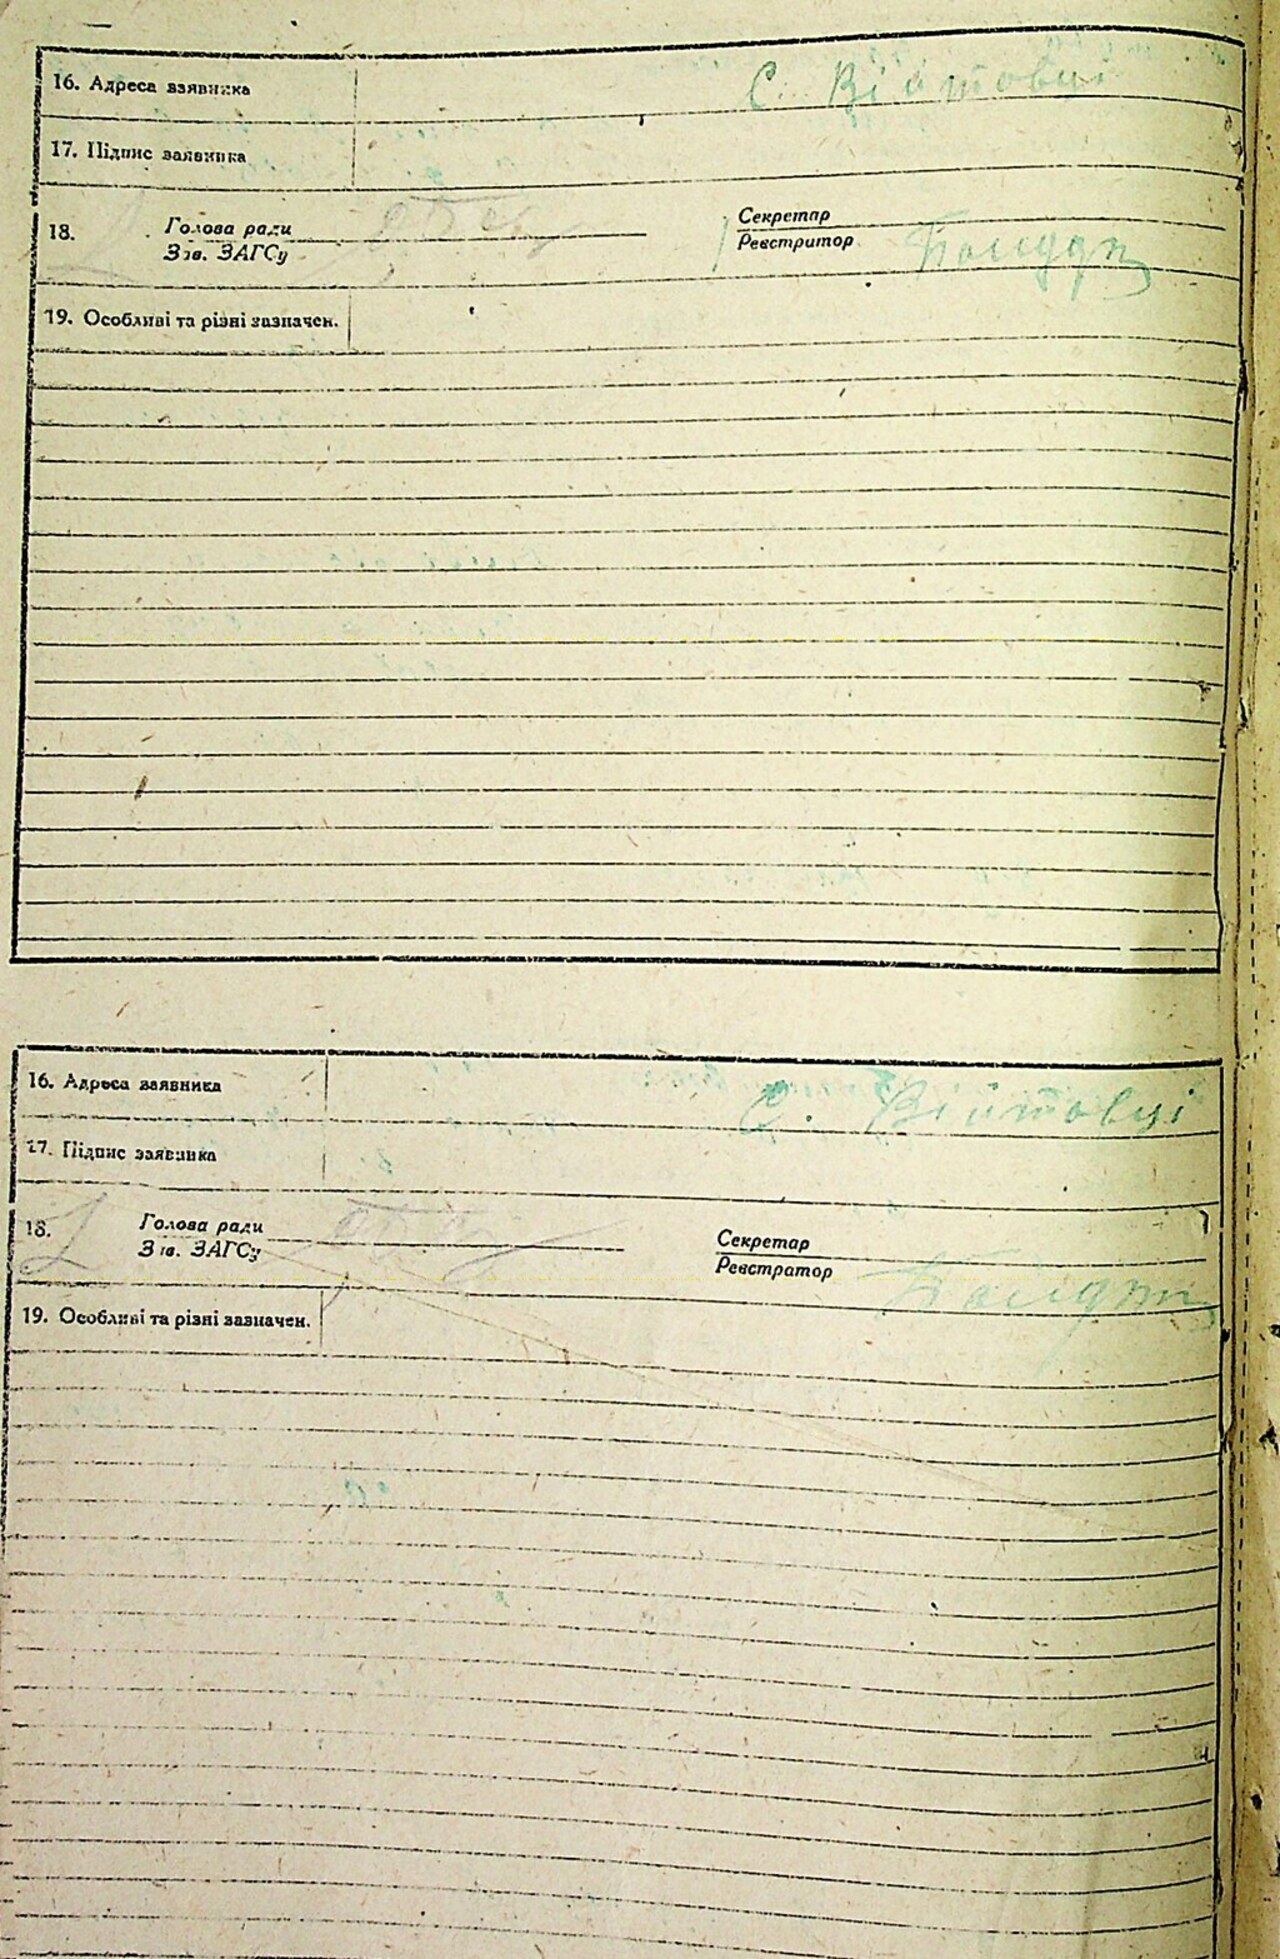 16. Адреса взявника С. Війтовці
17. Підпис заявника
18. Голова ради Секретар
Зав. ЗАГСу Реєстратор
19. Особливі та різні зазначен.
16. Адреса заявника С. Війтовці
17. Підпис заявника
18. Голова ради Секретар
Зав. ЗАГСу Реєстратор
19. Особливі та різні зазначен.